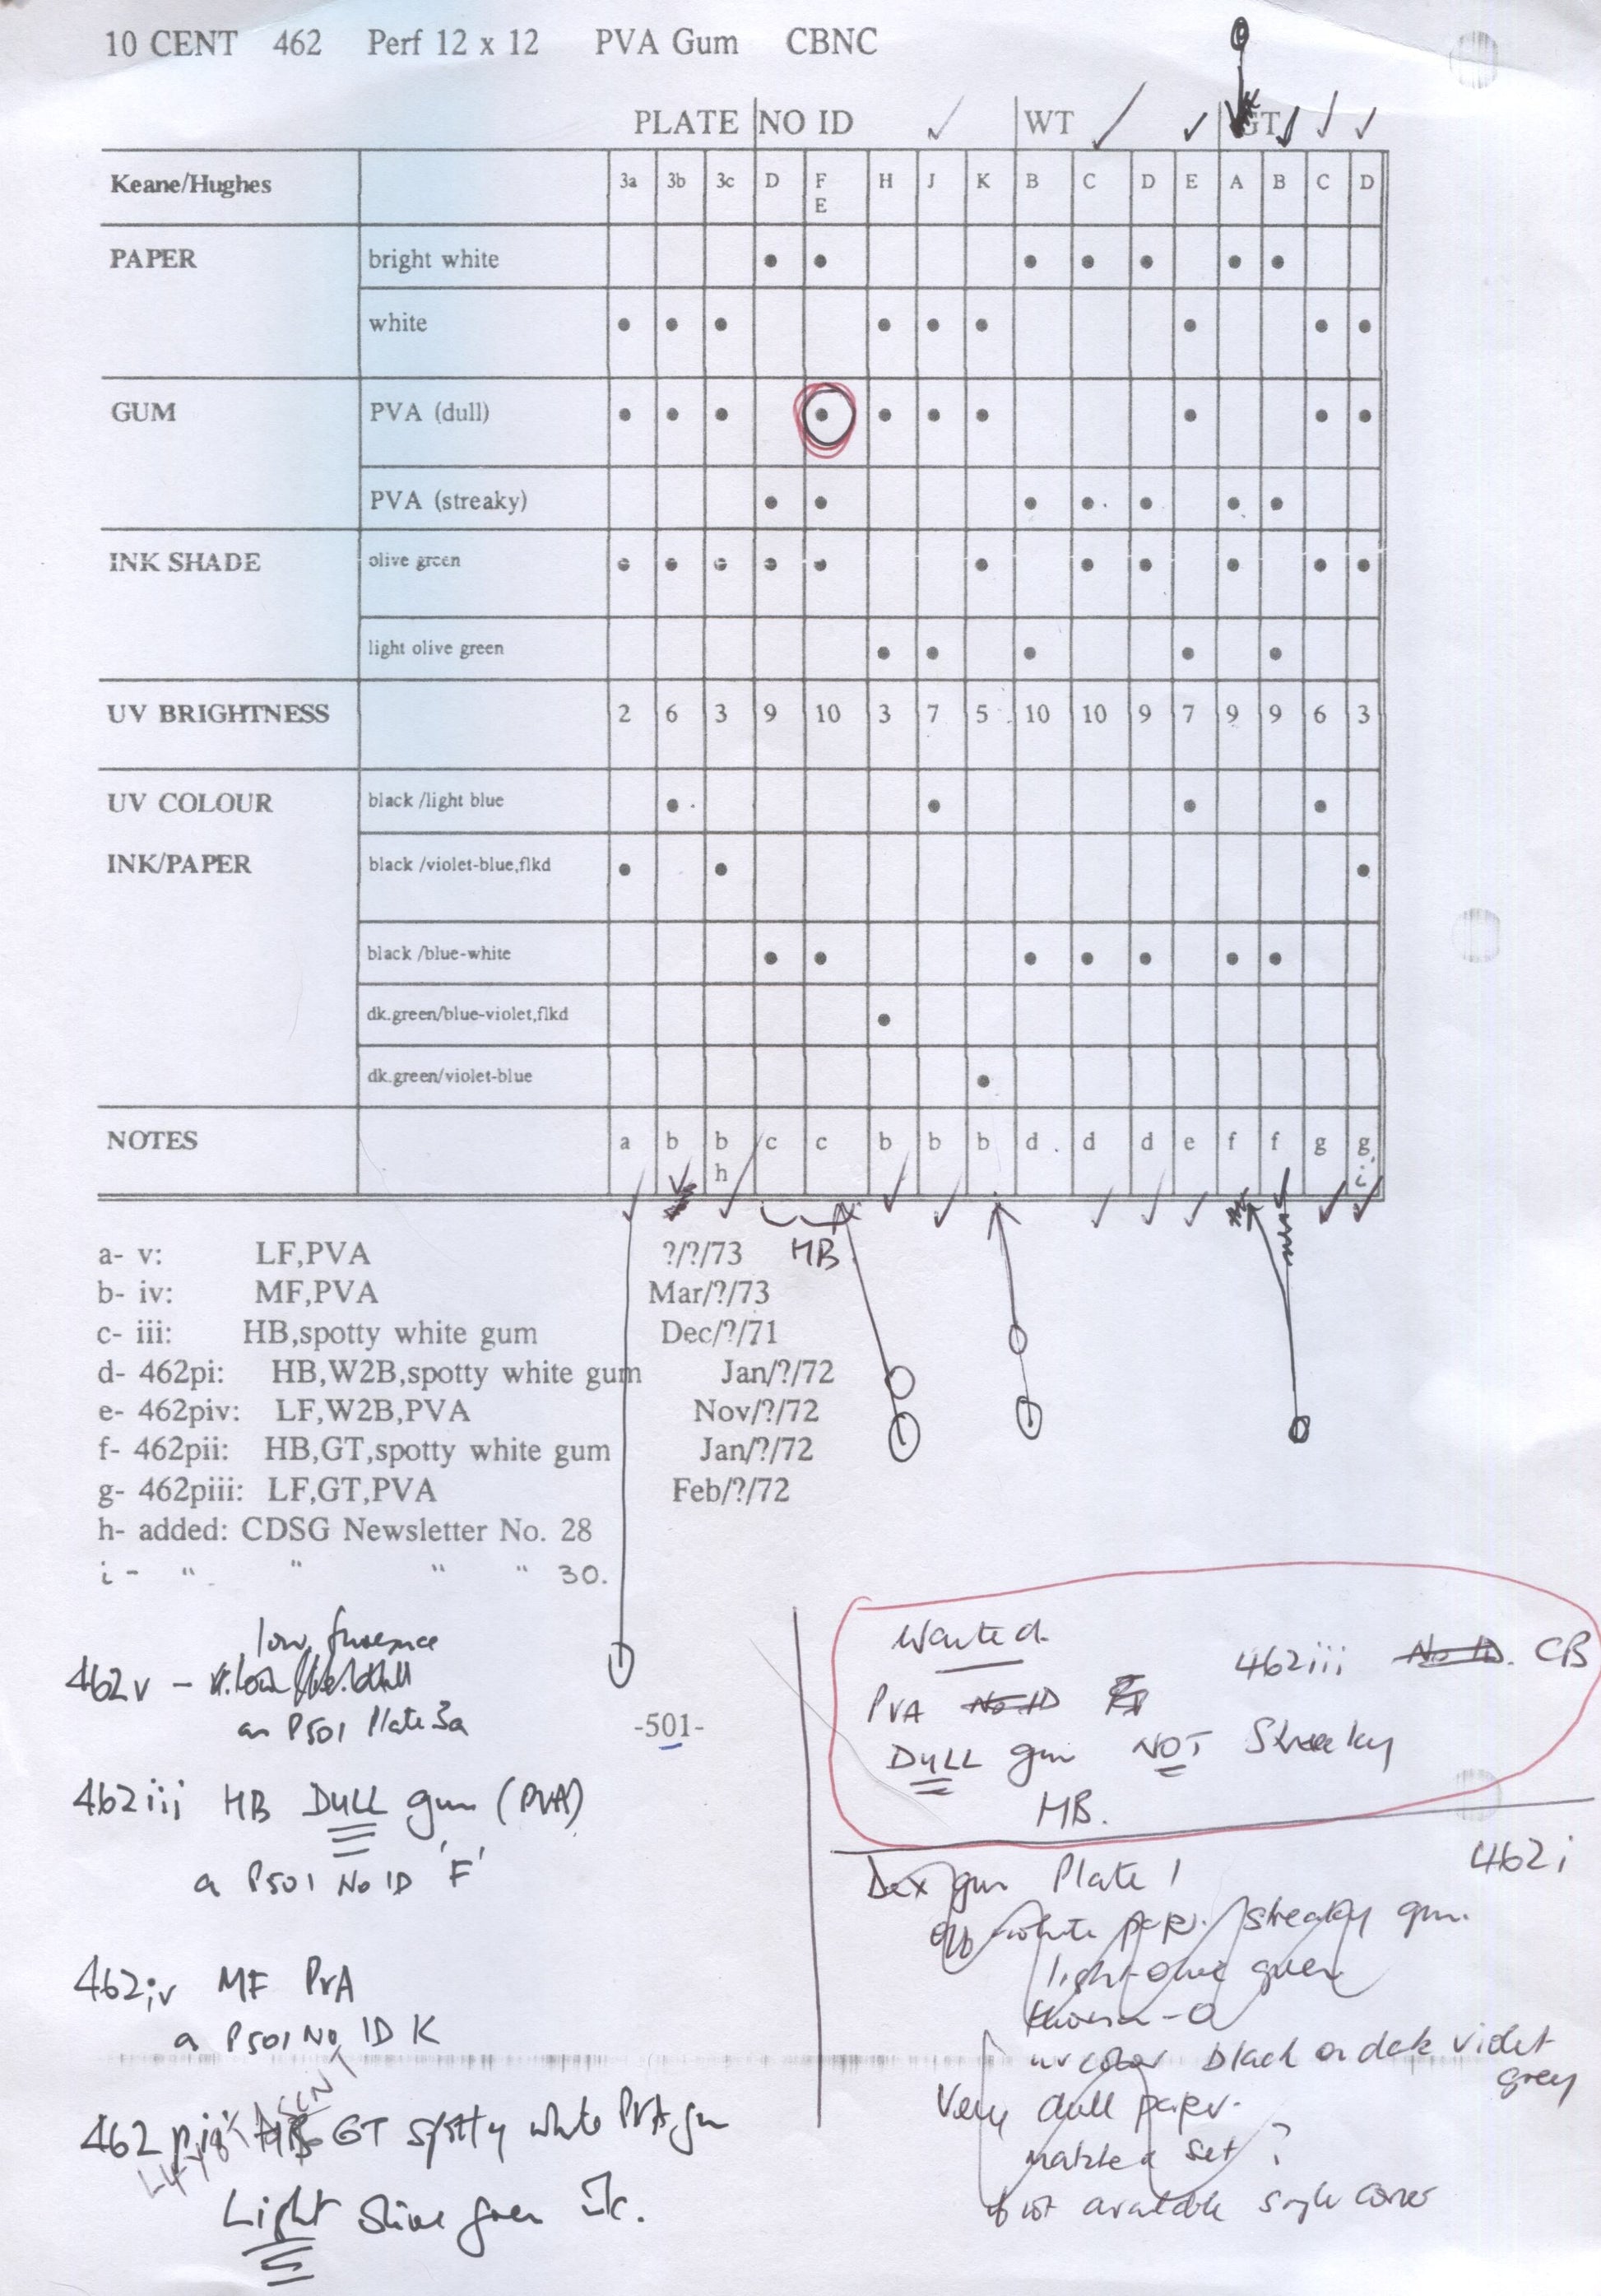 10 CENT 462 Perf 12 x 12 PVA Gum CBNC
PLATE NO ID WT GT
Keane/Hughes 3a 3b 3c D F H J K B C D E A B C D
E
PAPER bright white ● ● ● ● ● ● ●
white ● ● ● ● ● ● ● ● ●
GUM PVA (dull) ● ● ● ● ● ● ● ● ● ●
PVA (streaky) ● ● ● ● ● ● ●
INK SHADE olive green ● ● ● ● ● ● ● ● ● ● ●
light olive green ● ● ● ● ●
UV BRIGHTNESS 2 6 3 9 10 3 7 5 10 10 9 7 9 9 6 3
UV COLOUR black /light blue ● ● ● ●
INK/PAPER black /violet-blue,flkd ● ● ●
black /blue-white ● ● ● ● ● ● ●
dk.green/blue-violet,flkd ●
dk.green/violet-blue ●
NOTES a b b c c b b b d d d e f f g g
h i
HB
a- v: LF,PVA ?/?/73
b- iv: MF,PVA Mar/?/73
c- iii: HB,spotty white gum Dec/?/71
d- 462pi: HB,W2B,spotty white gum Jan/?/72
e- 462piv: LF,W2B,PVA Nov/?/72
f- 462pii: HB,GT,spotty white gum Jan/?/72
g- 462piii: LF,GT,PVA Feb/?/72
h- added: CDSG Newsletter No. 28
i- " " " " 30.
low
462v -
P501 Plate 3a
-501-
462iii HB DULL gum (PVA)
a P501 No ID 'F'
462iv MF PVA
a P501 No ID K
462pii HB GT spotty white PVA gum
Light olive green
Wanted.
462iii No ID. CB
PVA No ID
DULL gum NOT Streaky
HB.
462i
Dex gum Plate 1
white paper streaky gum.
light olive green
uv color black on dark violet
grey
Very dull paper.
matched set ?
if not available single corner